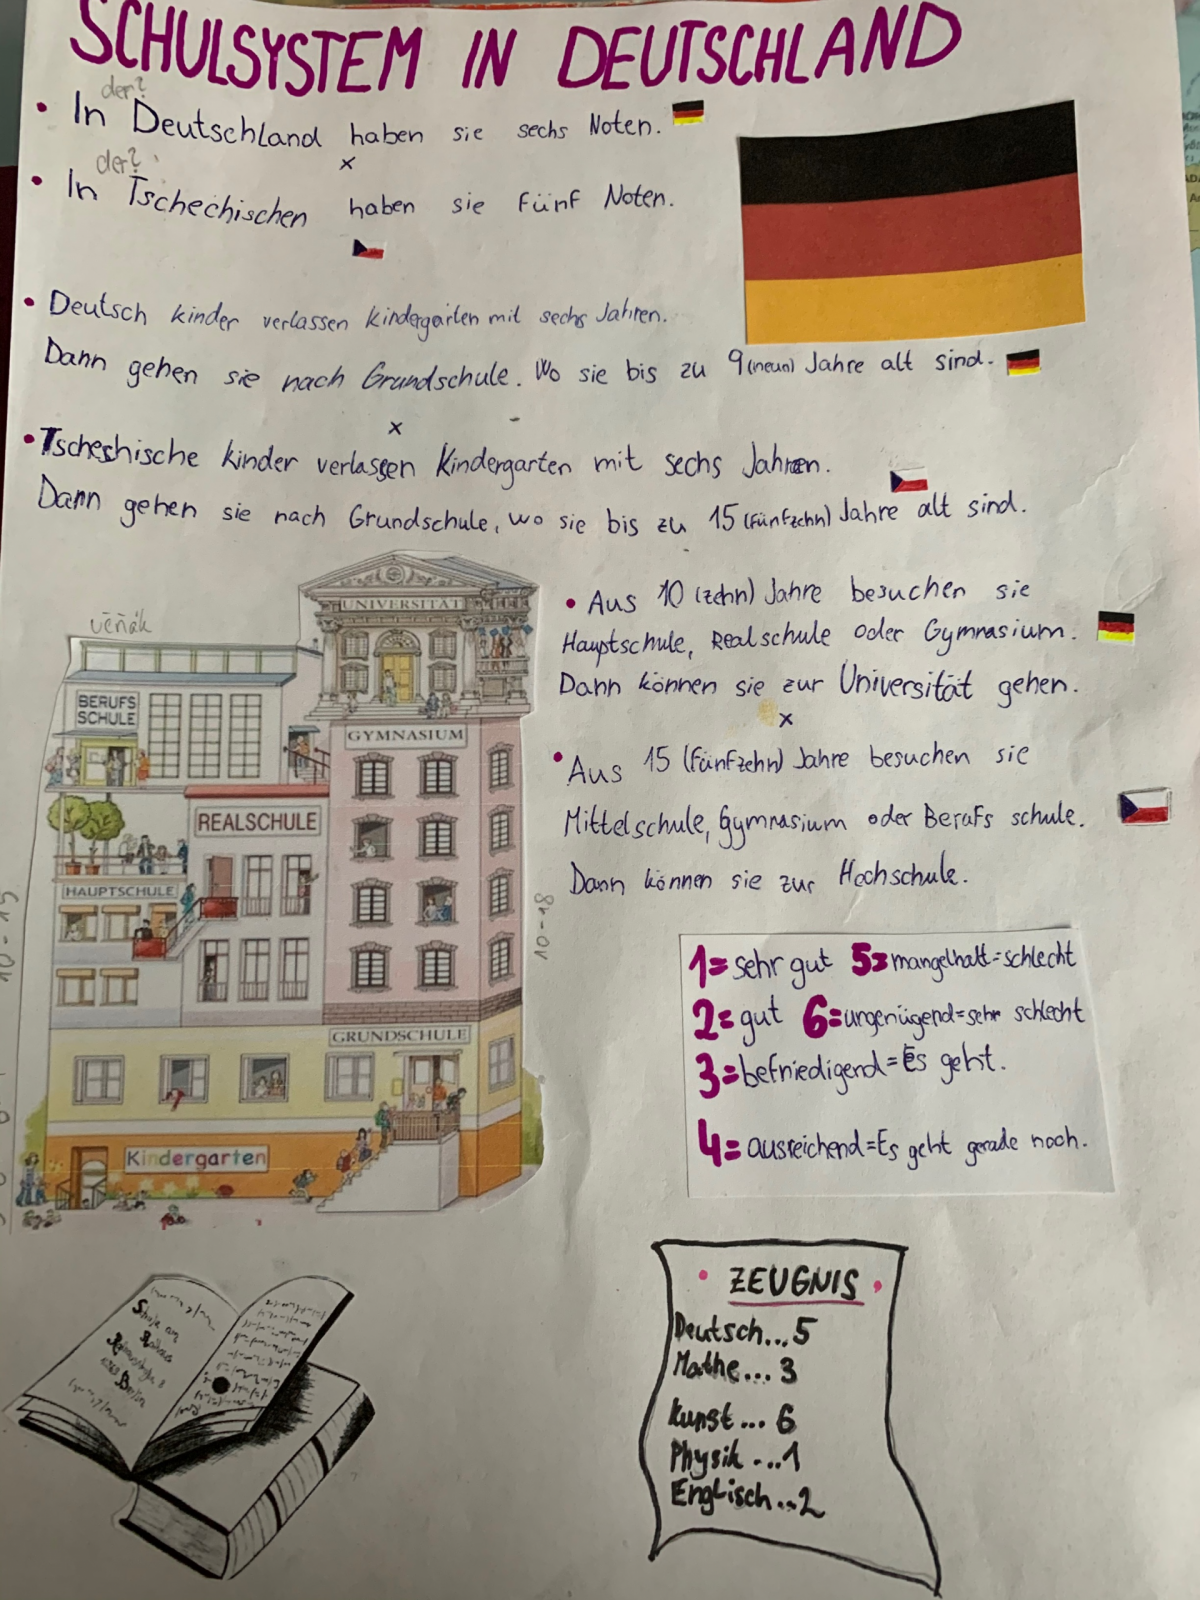 SCHULSYSTEM IN DEUTSCHLAND
der?
• In Deutschland haben sie sechs Noten.
x
der?
• In Tschechischen haben sie fünf Noten.
• Deutsch kinder verlassen kindergarten mit sechs Jahren.
Dann gehen sie nach Grundschule. Wo sie bis zu 9 (neun) Jahre alt sind.
x
• Tschechische kinder verlassen Kindergarten mit sechs Jahren.
Dann gehen sie nach Grundschule, wo sie bis zu 15 (fünfzehn) Jahre alt sind.
• Aus 10 (zehn) Jahre besuchen sie
Hauptschule, Realschule oder Gymnasium.
Dann können sie zur Universität gehen.
x
• Aus 15 (fünfzehn) Jahre besuchen sie
Mittelschule, Gymnasium oder Berufs schule.
Dann können sie zur Hochschule.
učňák
UNIVERSITÄT
BERUFS
SCHULE
GYMNASIUM
REALSCHULE
HAUPTSCHULE
10-15
10-18
GRUNDSCHULE
Kindergarten
1= sehr gut 5= mangelhaft=schlecht
2= gut 6=ungenügend=sehr schlecht
3=befriedigend=Es geht.
4= ausreichend=Es geht gerade noch.
Schule am
Rathaus
Berlin
• ZEUGNIS •
Deutsch...5
Mathe... 3
Kunst... 6
Physik ...1
Englisch...2